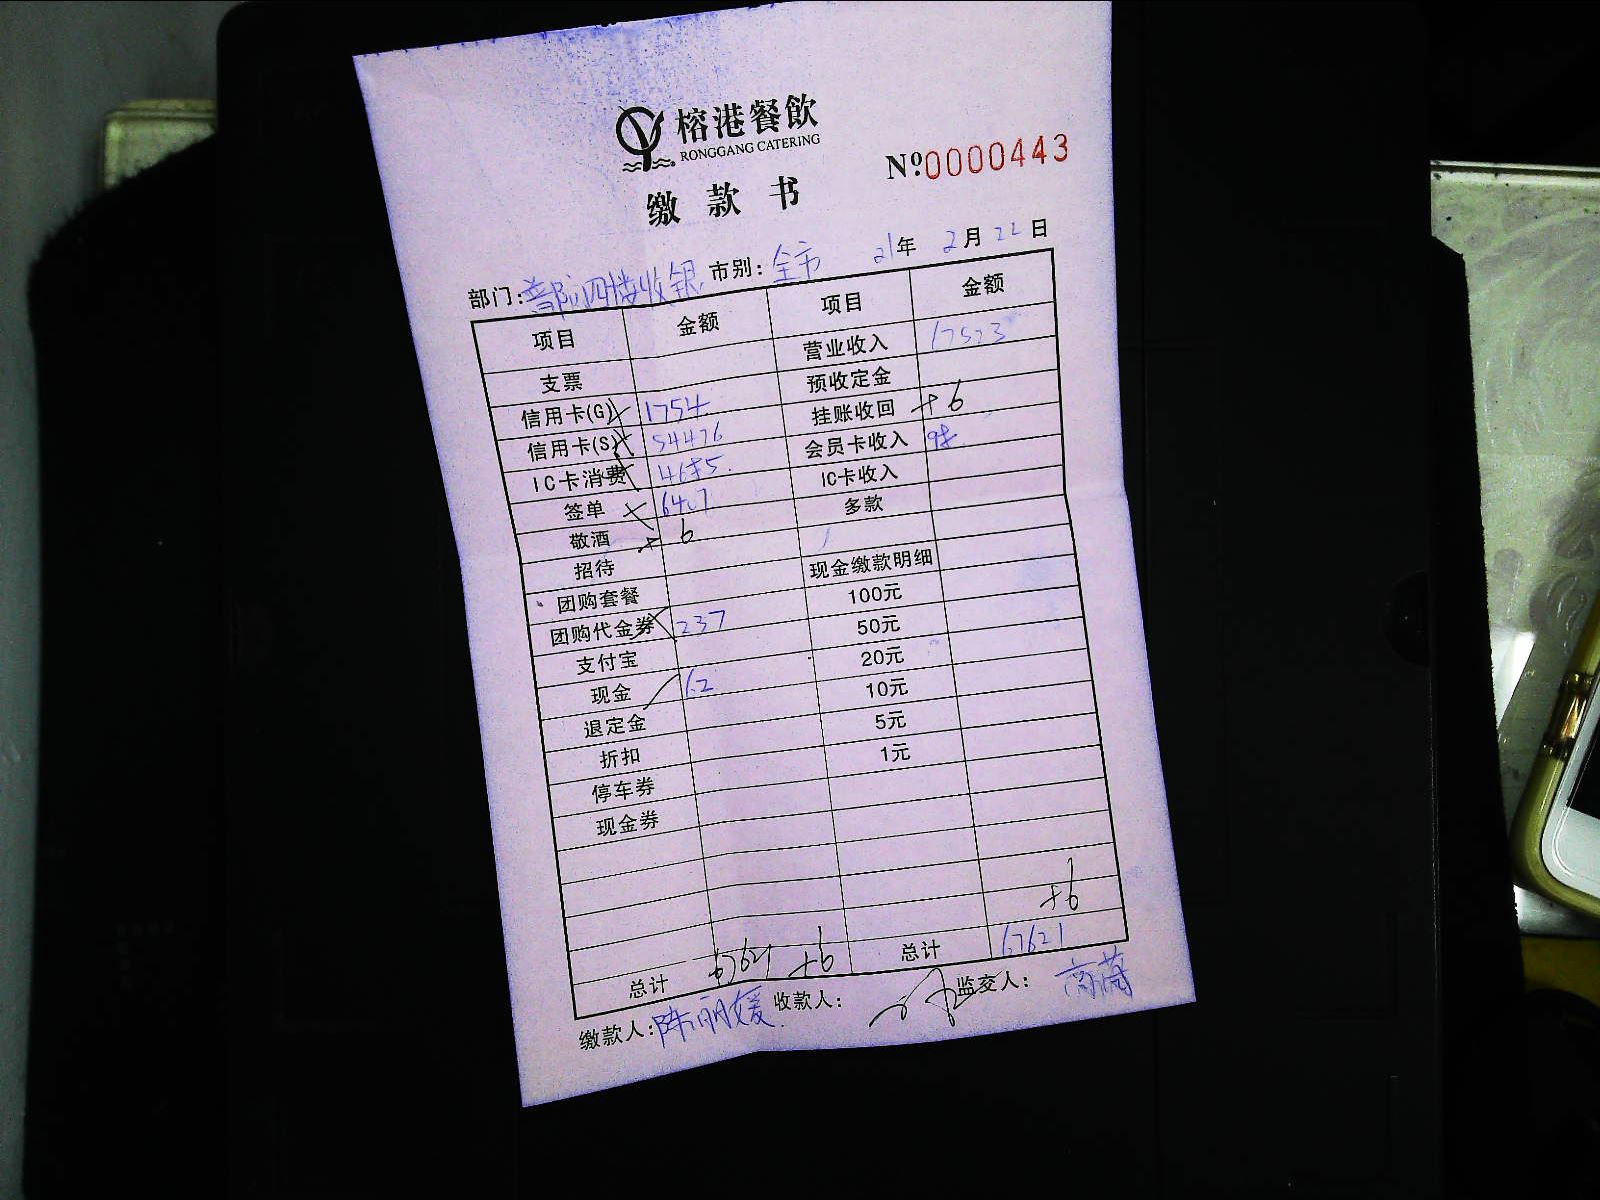 榕港餐飲
RONGGANG CATERING
№0000443
缴款书
部门: 四楼收银 市别: 全市 21年 2月 22日
项目 金额 项目 金额
支票 营业收入
信用卡(G) 1754 预收定金
信用卡(S) 54476 挂账收回 +6
IC卡消费 4685 会员卡收入 98
签单 6407 IC卡收入
敬酒 +6 多款
招待
团购套餐 现金缴款明细
团购代金券 237 100元
支付宝 50元
现金 62 20元
退定金 10元
折扣 5元
停车券 1元
现金券
+6
总计 67621 +6 总计 67621
缴款人: 陈丽媛 收款人: 监交人: